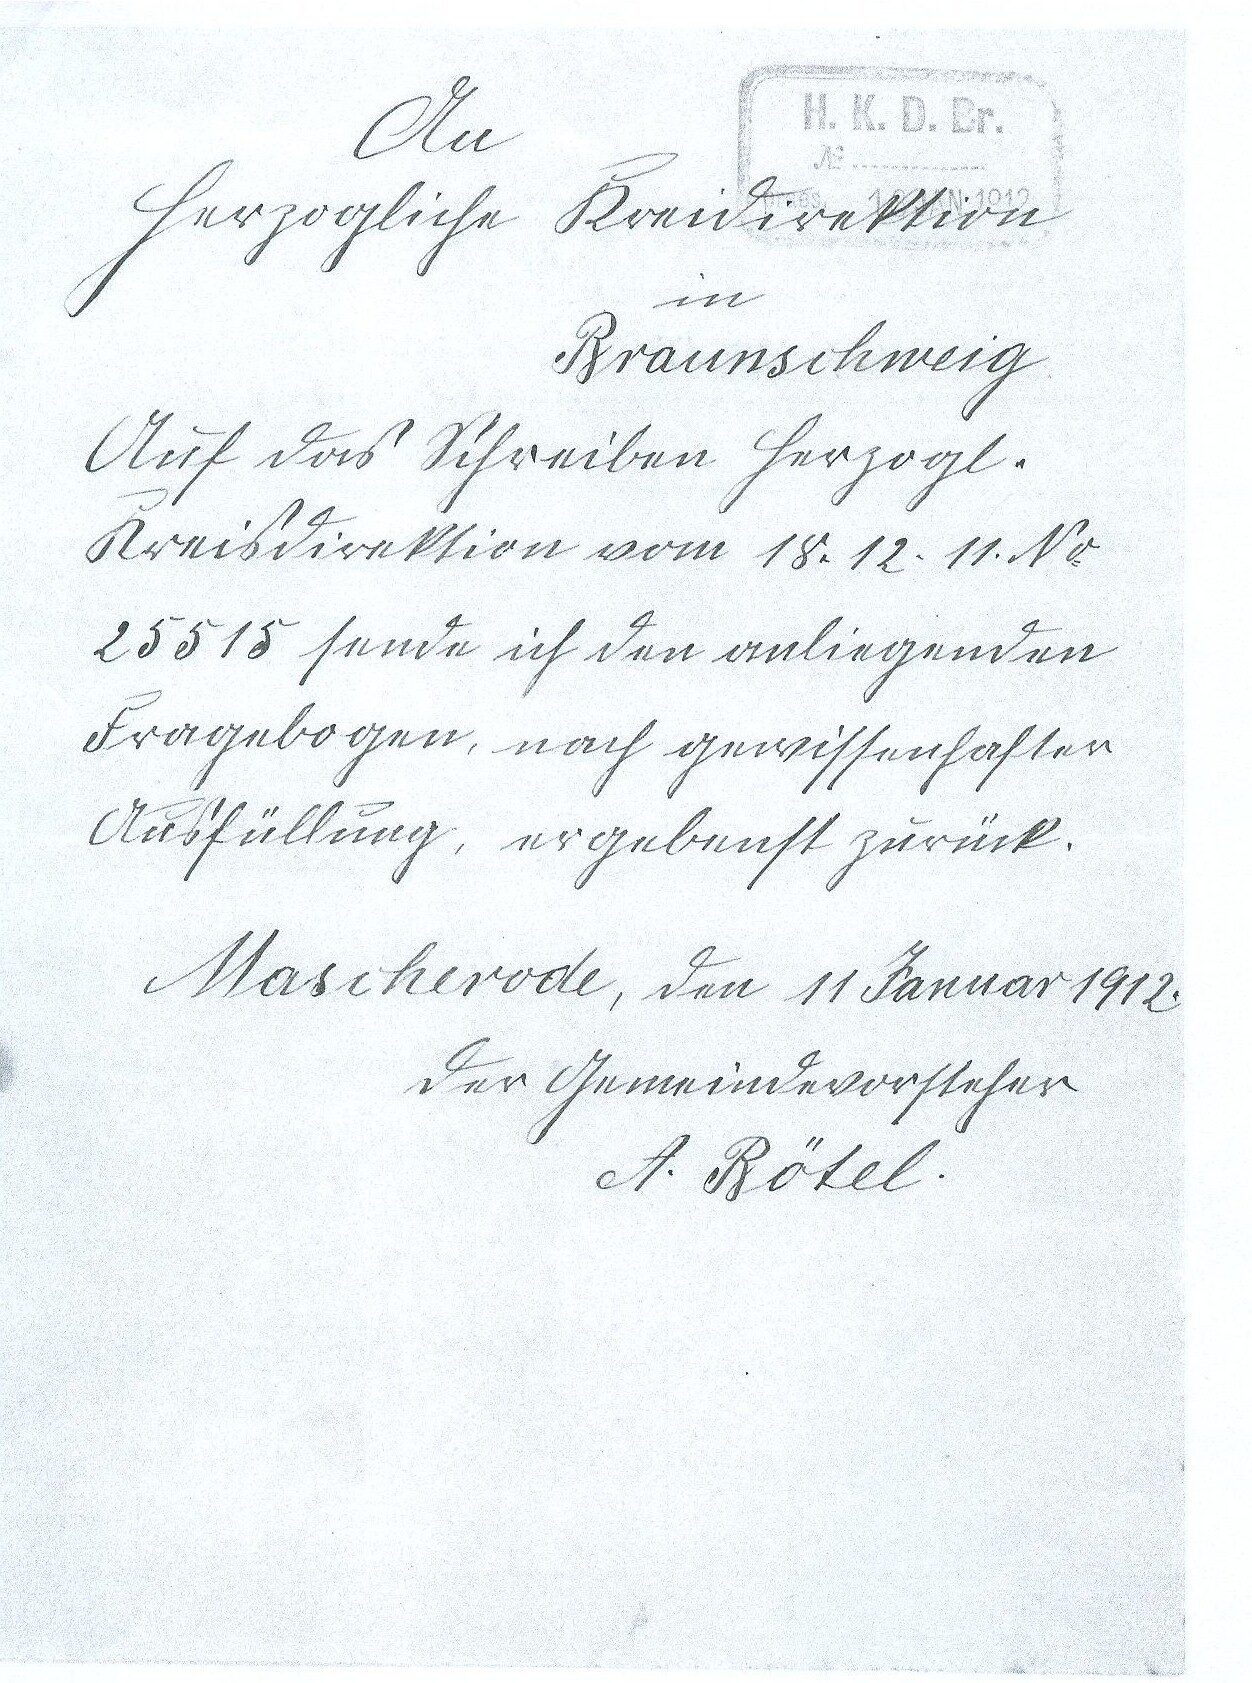 H. K. D. Br.
№
JAN. 1912
An
Herzogliche Kreidirektion
in
Braunschweig
Auf das Schreiben Herzogl.
Kreisdirektion vom 18. 12. 11. No
25515 sende ich den anliegenden
Fragebogen, nach gewissenhafter
Ausfüllung, ergebenst zurück.
Mascherode, den 11 Januar 1912.
Der Gemeindevorsteher
A. Rötel.